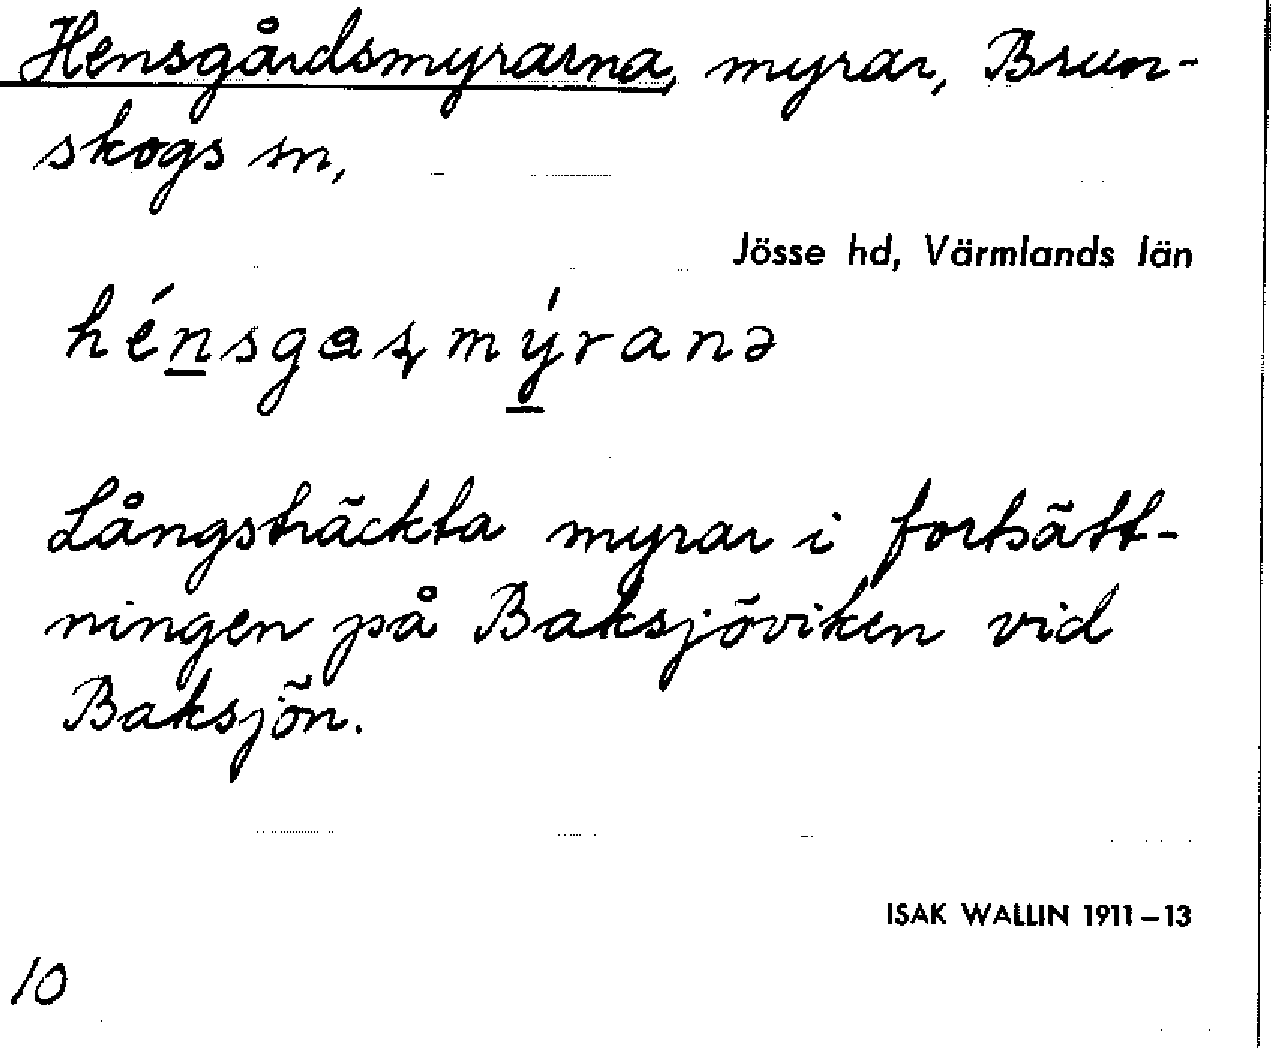 Hensgårdsmyrarna, myrar, Brun-
skogs sn,
Jösse hd, Värmlands län
hénsgaʂmýranə
Långsträckta myrar i fortsätt-
ningen på Baksjöviken vid
Baksjön.
ISAK WALLIN 1911–13
10